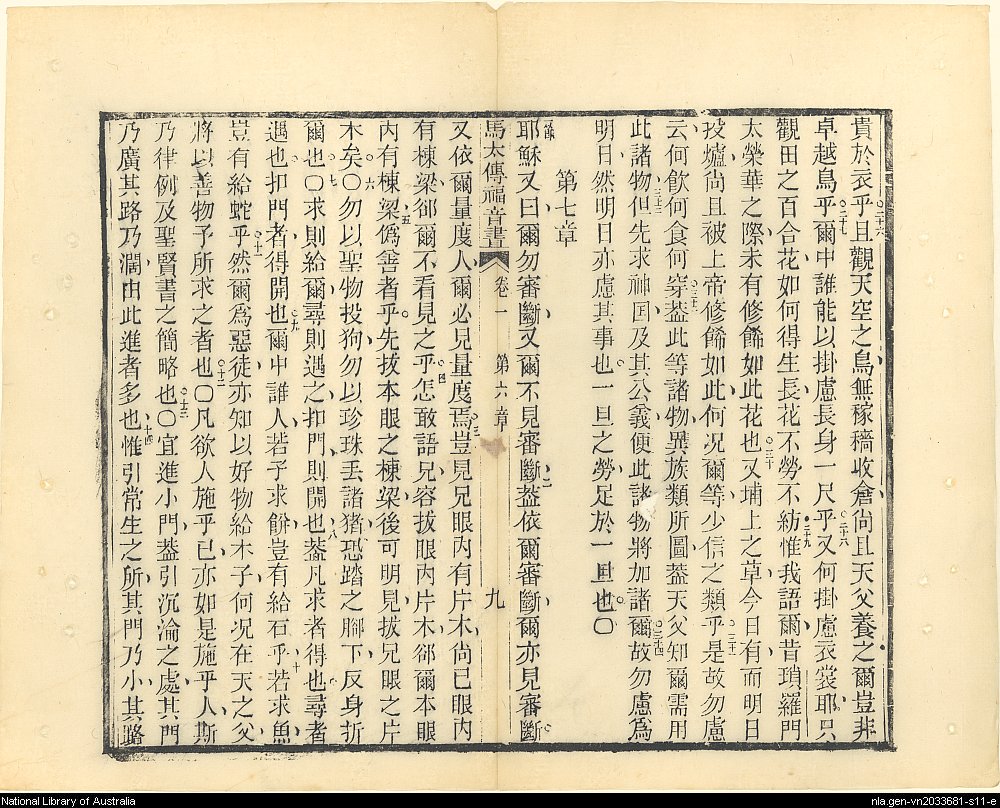 貴於衣乎且觀天空之鳥無稼穡收倉尚且天父養之爾豈非
二十六
卓越鳥乎爾中誰能以掛慮長身一尺乎又何掛慮衣裳耶只
二十七 二十八
觀田之百合花如何得生長花不勞不紡惟我語爾昔瑣羅門
二十九
太榮華之際未有修餙如此花也又埔上之草今日有而明日
三十
投爐尚且被上帝修餙如此何况爾等少信之類乎是故勿慮
三十一
云何飲何食何穿葢此等諸物異族類所圖葢天父知爾需用
三十二
此諸物但先求神囯及其公義便此諸物將加諸爾故勿慮爲
三十三 三十四
明日然明日亦慮其事也一旦之勞足於一旦也〇
第七章
耶穌又曰爾勿審斷又爾不見審斷葢依爾審斷爾亦見審斷
一 二
馬太傳福音書 卷一 第六章 九
又依爾量度人爾必見量度焉豈見兄眼內有片木尚已眼內
三
有棟梁郤爾不看見之乎怎敢語兄容拔眼內片木郤爾本眼
四
內有棟梁僞善者乎先拔本眼之棟梁後可明見拔兄眼之片
五
木矣〇勿以聖物投狗勿以珍珠丟諸猪恐踏之脚下反身折
六
爾也〇求則給爾尋則遇之扣門則開也葢凡求者得也尋者
七 八
遇也扣門者得開也爾中誰人若子求餅豈有給石乎若求魚
九 十
豈有給蛇乎然爾爲惡徒亦知以好物給木子何况在天之父
十一
將以善物予所求之者也〇凡欲人施乎已亦如是施乎人斯
十二
乃律例及聖賢書之簡略也〇宜進小門葢引沉淪之處其門
十三
乃廣其路乃濶由此進者多也惟引常生之所其門乃小其路
十四
National Library of Australia
nla.gen-vn2033681-s11-e